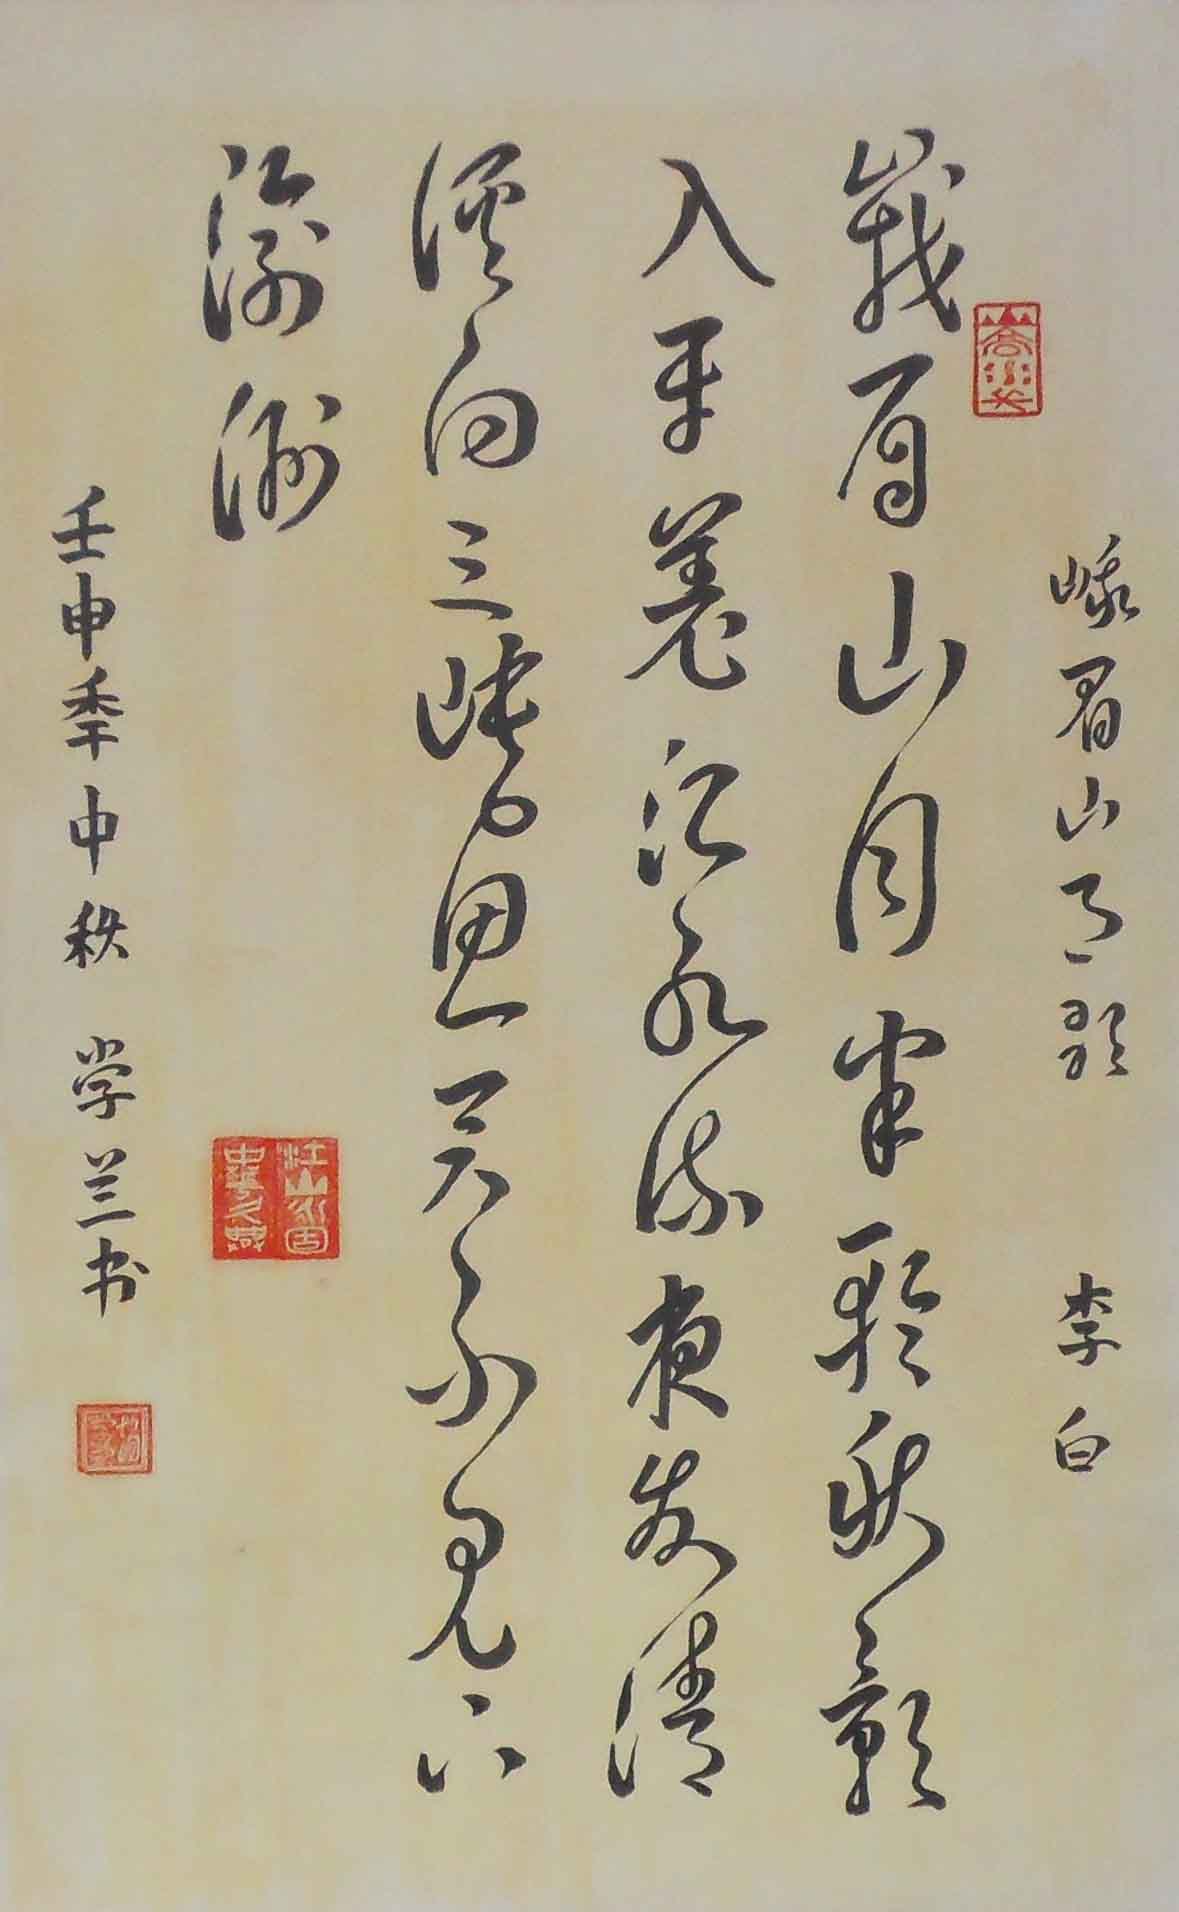 峨眉山月歌 李白
峨眉山月半轮秋影
入平羌江水流夜发清
溪向三峡思君不见下
渝州
壬申季中秋 学兰书
江山永固
中華之興